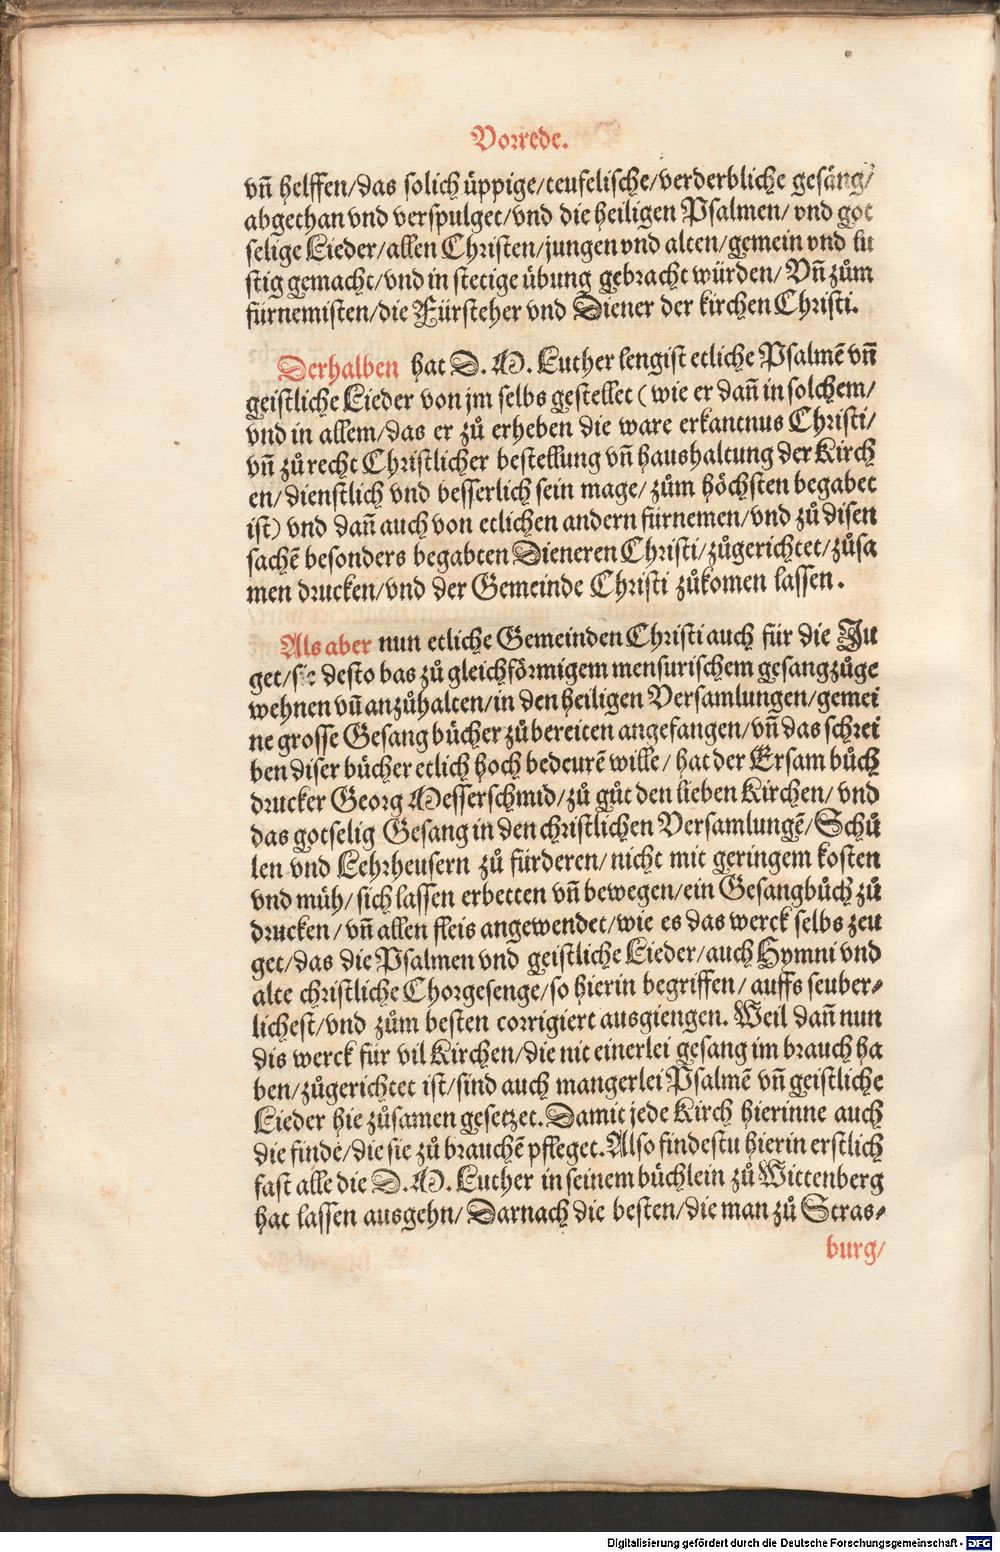 Vorrede.
vn̄ helffen/das solich üppige/teufelische/verderbliche gesäng/
abgethan vnd verspulget/vnd die heiligen Psalmen/ vnd got
selige Lieder/allen Christen/jungen vnd alten/gemein vnd lu
stig gemacht/vnd in stetige übung gebracht würden/ Vn̄ zům
fürnemisten/die Fürsteher vnd Diener der kirchen Christi.
Derhalben hat D. M. Luther lengist etliche Psalmē vn̄
geistliche Lieder von jm selbs gestellet (wie er dan̄ in solchem/
vnd in allem/das er zů erheben die ware erkantnus Christi/
vn̄ zů recht Christlicher bestellung vn̄ haushaltung der Kirch
en/dienstlich vnd besserlich sein mage/zům höchsten begabet
ist) vnd dan̄ auch von etlichen andern fürnemen/vnd zů disen
sachē besonders begabten Dieneren Christi/zůgerichtet/zůsa
men drucken/vnd der Gemeinde Christi zůkomen lassen.
Als aber nun etliche Gemeinden Christi auch für die Ju
get/sie desto bas zů gleichförmigem mensurischem gesang zůge
wehnen vn̄ anzůhalten/in den heiligen Versamlungen/gemei
ne grosse Gesang bücher zůbereiten angefangen/vn̄ das schrei
ben diser bücher etlich hoch bedeurē wille/hat der Ersam bůch
drucker Georg Messerschmid/zů gůt den lieben Kirchen/ vnd
das gotselig Gesang in den christlichen Versamlungē/Schů
len vnd Lehrheusern zů fürderen/nicht mit geringem kosten
vnd müh/sich lassen erbetten vn̄ bewegen/ein Gesangbůch zů
drucken/vn̄ allen fleis angewendet/wie es das werck selbs zeu
get/das die Psalmen vnd geistliche Lieder/auch Hymni vnd
alte christliche Chorgesenge/so hierin begriffen/auffs seuber⸗
lichest/vnd zům besten corrigiert ausgiengen. Weil dan̄ nun
dis werck für vil Kirchen/die nit einerlei gesang im brauch ha
ben/zůgerichtet ist/sind auch mangerlei Psalmē vn̄ geistliche
Lieder hie zůsamen gesetzet. Damit jede Kirch hierinne auch
die finde/die sie zů brauchē pfleget. Also findestu hierin erstlich
fast alle die D. M. Luther in seinem büchlein zů Wittenberg
hat lassen ausgehn/ Darnach die besten/die man zů Stras⸗
burg/
Digitalisierung gefördert durch die Deutsche Forschungsgemeinschaft - DFG